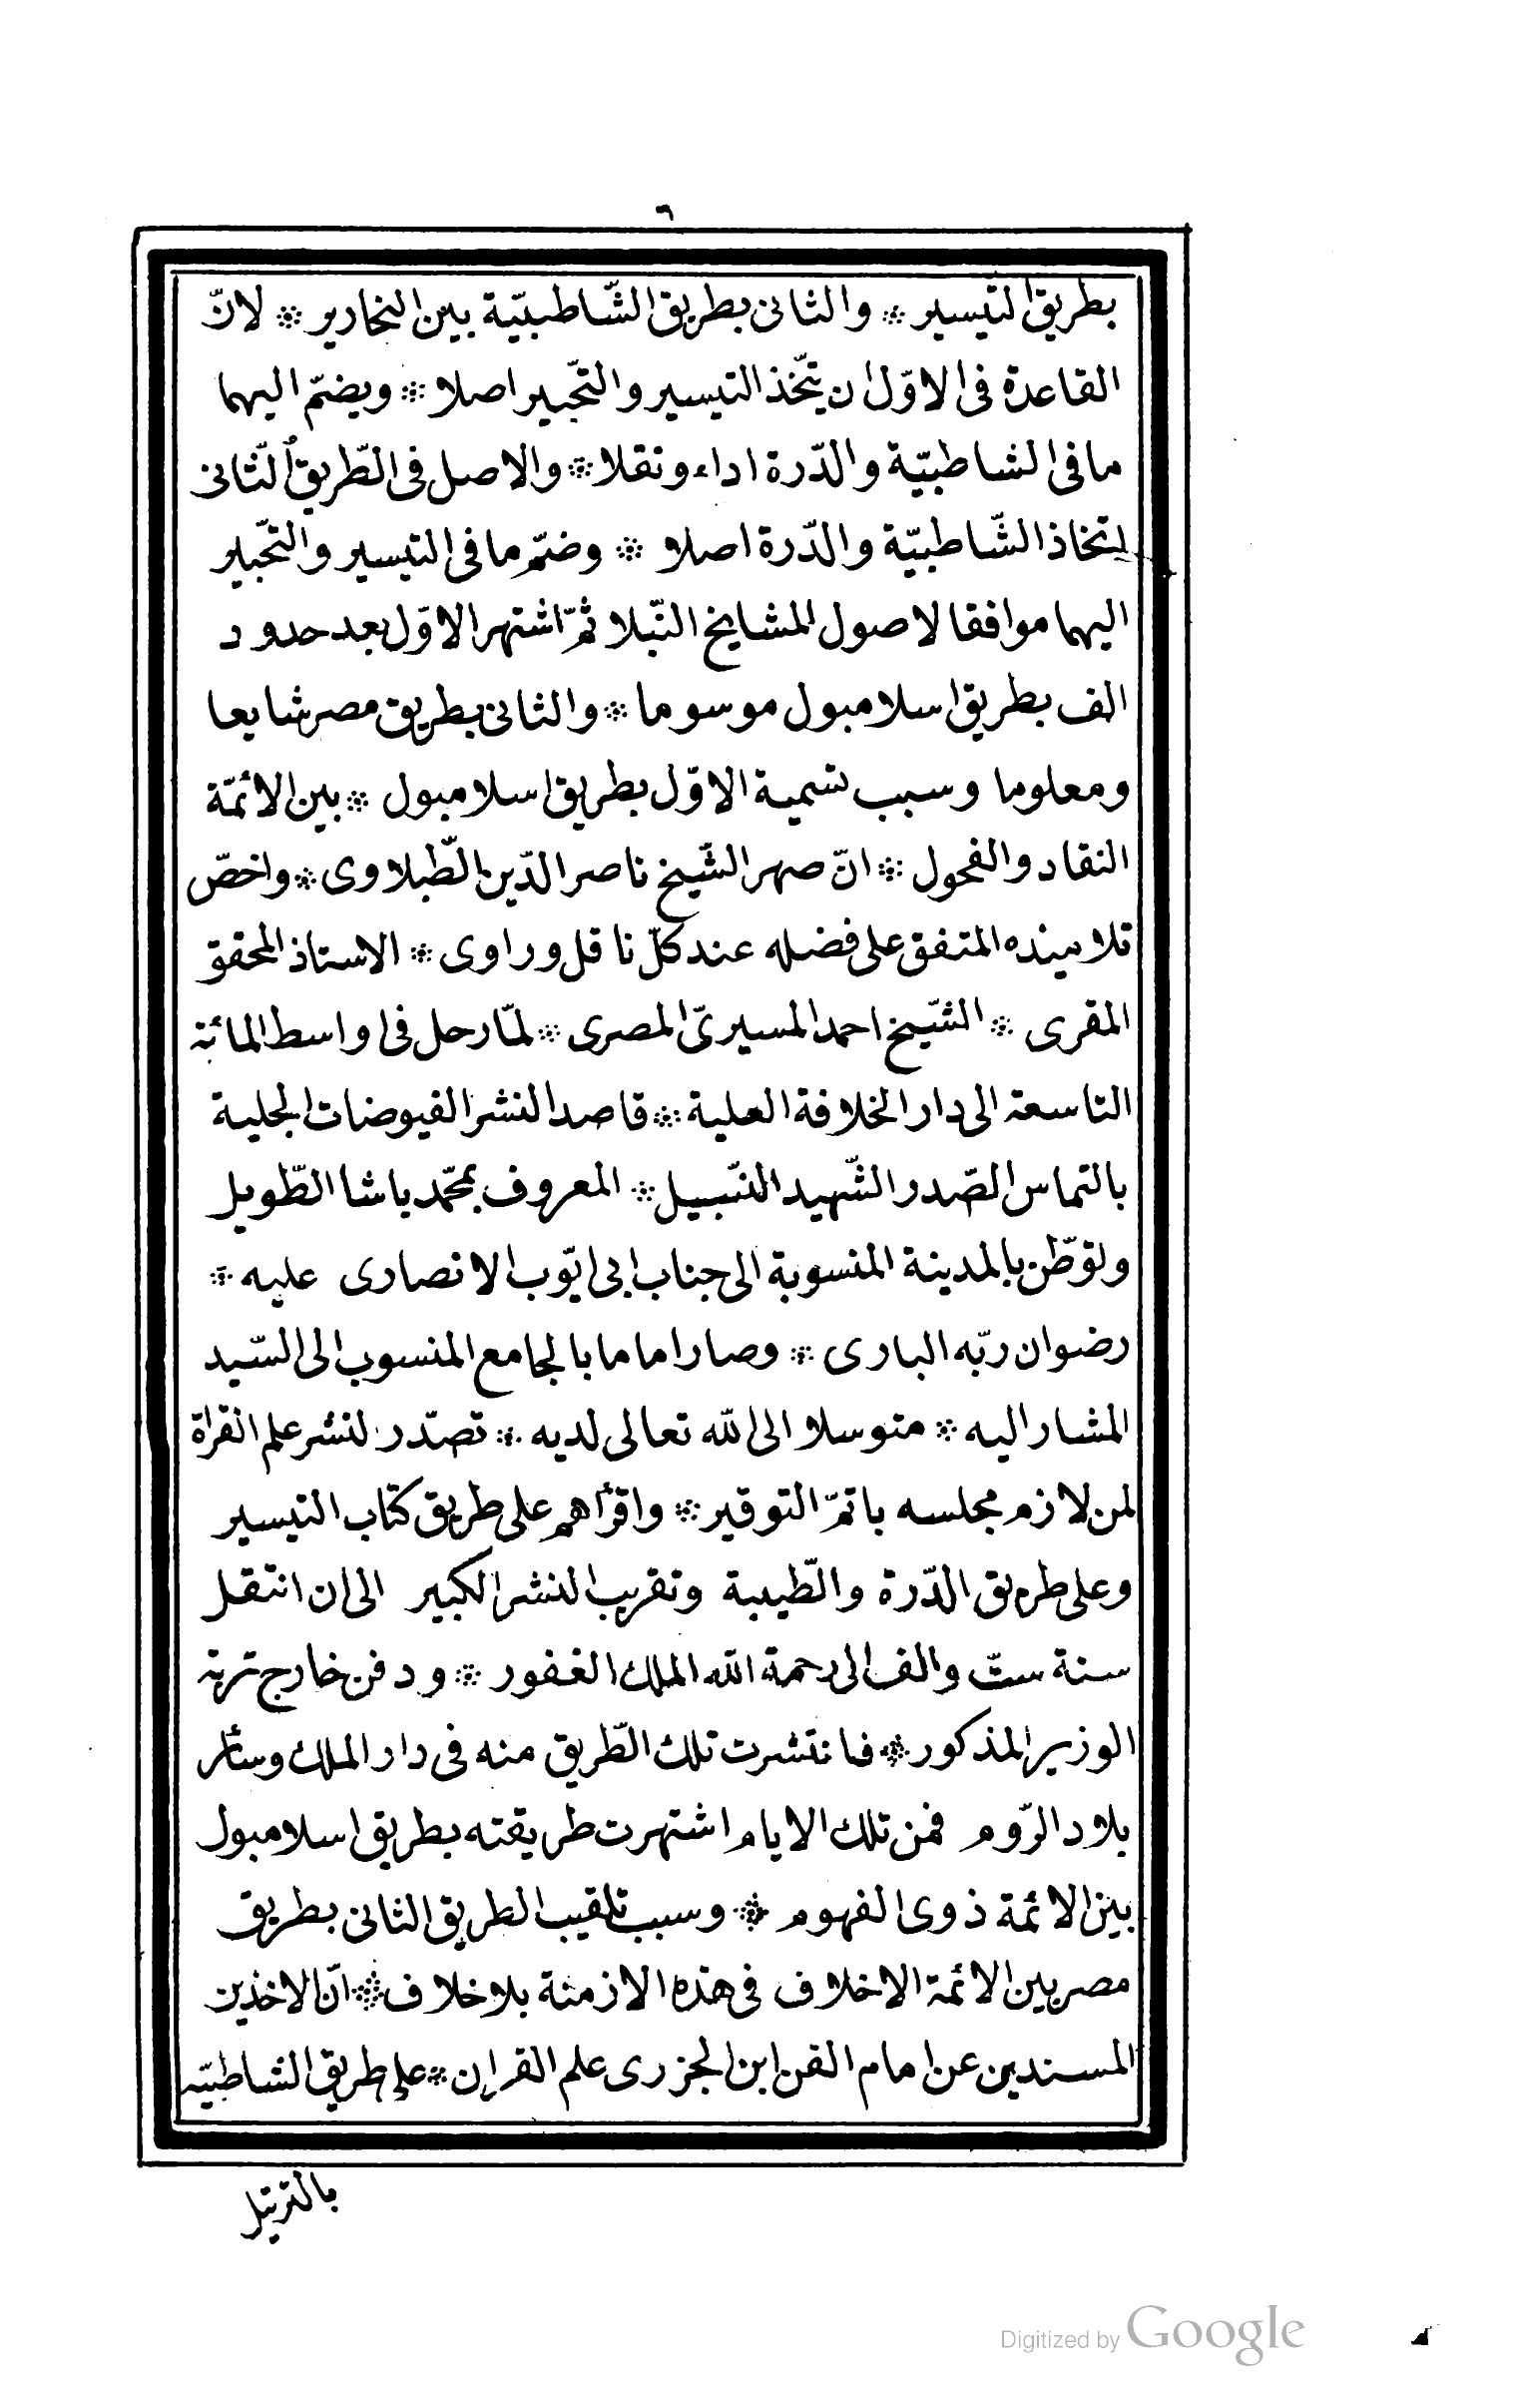 ٦
بطريق التّيسير ؞ والثانى بطريق الشّاطبيّة بين النحارير ؞ لانّ
القاعدة فى الاوّل ان يتّخذ التيسير والتّحبير اصلا ؞ ويضمّ اليهما
ما فى الشاطبيّة والدّرة اداء ونقلا ؞ والاصل فى الطّريق الثّانى
اتخاذ الشّاطبيّة والدّرة اصلا ؞ وضمّ ما فى التيسير والتّحبير
اليهما موافقا لاصول المشايخ النّبلا ثمّ اشتهر الاوّل بعد حدود
الف بطريق اسلامبول موسوما ؞ والثانى بطريق مصر شايعا
ومعلوما وسبب تسمية الاوّل بطريق اسلامبول ؞ بين الائمّة
النقاد والفحول ؞ انّ صهر الشّيخ ناصر الدّين الطّبلاوى ؞ واخصّ
تلاميذه المتفق على فضله عند كلّ ناقل وراوى ؞ الاستاذ المحقق
المقرى ؞ الشّيخ احمد المسيرىّ المصرى ؞ لمّا رحل فى اواسط المائة
التاسعة الى دار الخلافة العلية ؞ قاصدا لنشر الفيوضات الجلية
بالتماس الصّدر الشّهيد النّبيل ؞ المعروف بمحمّد باشا الطّويل
وتوطّن بالمدينة المنسوبة الى جناب ابى ايّوب الانصارى عليه ؞
رضوان ربّه البارى ؞ وصار اماما بالجامع المنسوب الى السّيد
المشار اليه ؞ متوسلا الى الله تعالى لديه ؞ تصدّر لنشر علم القراة
لمن لازم مجلسه باتمّ التوقير ؞ واقرأهم على طريق كتاب التيسير
وعلى طريق الدّرة والطّيبة وتقريب النشر الكبير الى ان انتقل
سنة ستّ والف الى رحمة الله الملك الغفور ؞ ودفن خارج تربة
الوزير المذكور ؞ فانتشرت تلك الطّريق منه فى دار الملك وسائر
بلاد الرّوم فمن تلك الايام اشتهرت طريقته بطريق اسلامبول
بين الائمة ذوى الفهوم ؞ وسبب تلقيب الطريق الثانى بطريق
مصر بين الائمة الاخلاف فى هذه الازمنة بلا خلاف ؞ انّ الاخذين
المسندين عن امام الفن ابن الجزرى علم القران ؞ على طريق الشاطبيّه
بالترتيل
Digitized by Google